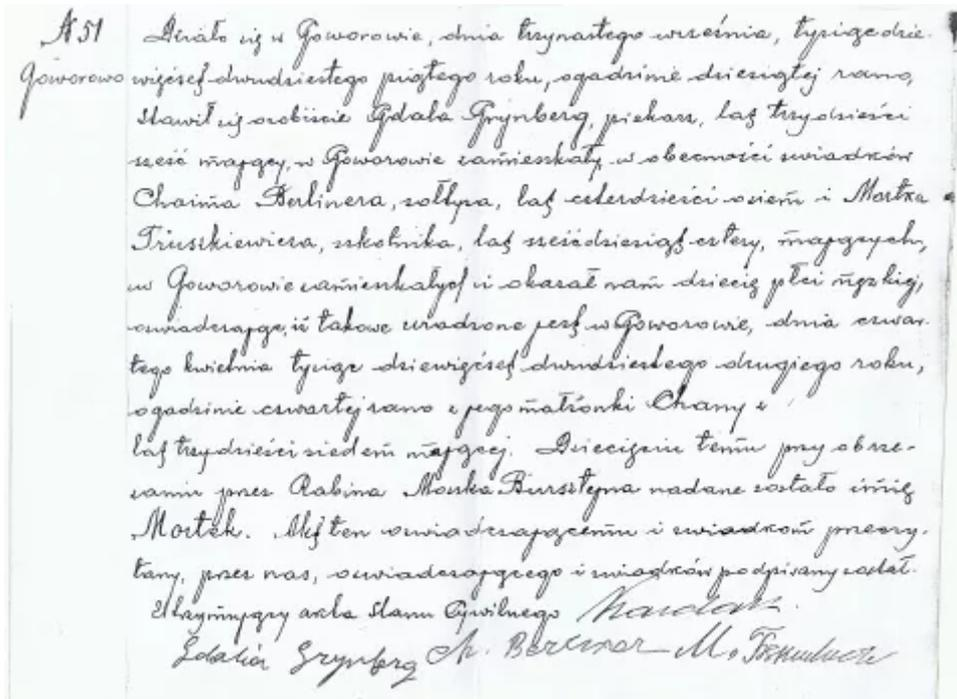 N 51
Goworowo
Działo się w Goworowie, dnia trzynastego września, tysiąc dzie-
więćset dwudziestego piątego roku, o godzinie dziesiątej rano,
stawił się osobiście Gdala Grynberg, piekarz, lat trzydzieści
sześć mający, w Goworowie zamieszkały, w obecności świadków
Chaima Berlinera, sołtysa, lat czterdzieści osiem i Mortka
Truszkiewicza, szkolnika, lat sześćdziesiąt cztery, mających,
w Goworowie zamieszkałych i okazał nam dziecię płci męzkiej,
oświadczając, iż takowe urodzone jest w Goworowie, dnia czwar-
tego kwietnia tysiąc dziewięćset dwudziestego drugiego roku,
o godzinie czwartej rano z jego małżonki Chany z
lat trzydzieści siedem mającej. Dziecięciu temu przy obrze-
zaniu przez Rabina Moszka Bursztyna nadane zostało imię
Mortek. Akt ten oświadczającemu i świadkom przeczy-
tany, przez nas, oświadczającego i świadków podpisany został.
Utrzymujący akta stanu Cywilnego
Gdalia Grynberg Ch. Berliner M.